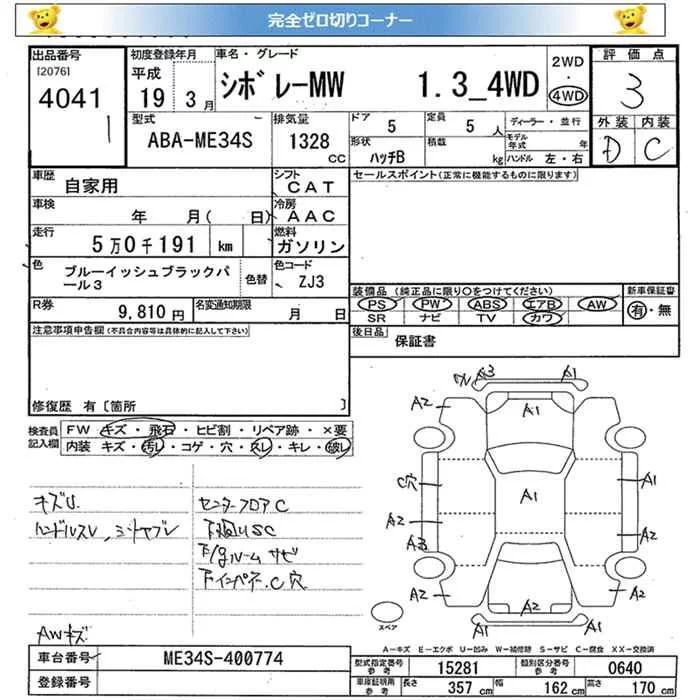 完全ゼロ切りコーナー
出品番号 初度登録年月 車名・グレード 2WD 評価点
[2076] 平成 シボレーMW 1.3_4WD ・ 3
4041 19 3月 4WD
1 型式 排気量 ドア 5 定員 5人 ディーラー・並行 外装 内装
ABA-ME34S 1328 モデル年式 年 D C
cc 形状 ハッチB 積載 kg ハンドル 左・右
車歴 自家用 シフト CAT セールスポイント(正常に機能するものに限ります)
車検 年 月( 日) 冷房 AAC
走行 5万0千191 km 燃料 ガソリン
色 ブルーイッシュブラックパール3 色替 色コード ZJ3
装備品 (純正品に限り○をつけてください) 新車保証書
R券 9,810円 名変通知期限 月 日 PS PW ABS エアB AW 有・無
SR ナビ TV カワ
注意事項申告欄(不具合内容等は具体的に記入して下さい) 後日品 保証書
修復歴 有 [箇所 ]
検査員記入欄 FW キズ・飛石・ヒビ割・リペア跡・×要
内装 キズ・汚レ・コゲ・穴・スレ・キレ・破レ
A3 A1
A2 A1 A2
C穴 A1 A1
A2 A2
A3
A2 A2 A2
A1 A1
スペア
キズU センターフロアC
ハンドルスレ、シートヤブレ 下廻りSC
ルーム サビ
下インパネC穴
AWキズ
A-キズ E-エクボ U-凹み W-補修跡 S-サビ C-腐食 XX-交換済
車台番号 ME34S-400774 型式指定番号 参考 15281 類別区分番号 参考 0640
登録番号 車庫証明用 参考 長さ 357cm 幅 162cm 高さ 170cm